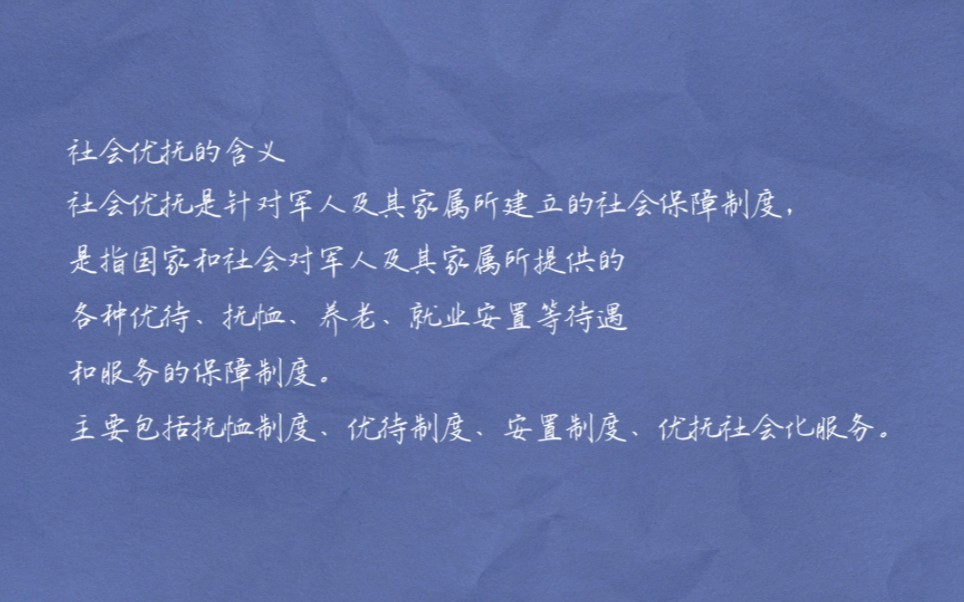 社会优抚的含义
社会优抚是针对军人及其家属所建立的社会保障制度，
是指国家和社会对军人及其家属所提供的
各种优待、抚恤、养老、就业安置等待遇
和服务的保障制度。
主要包括抚恤制度、优待制度、安置制度、优抚社会化服务。